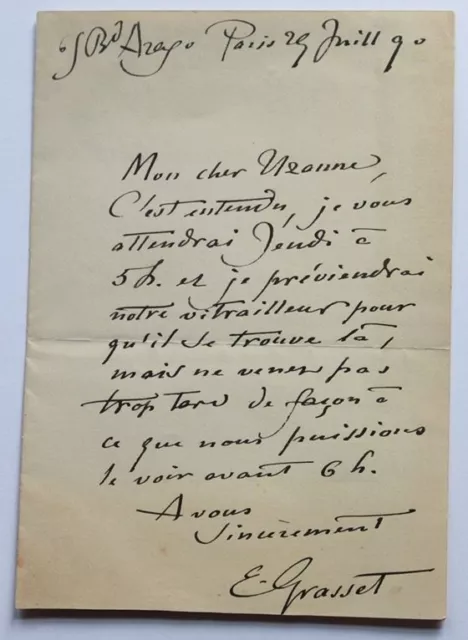 65 Bd Arago Paris 29 Juill 90
Mon cher Uzanne,
C'est entendu, je vous
attendrai Jeudi à
5 h. et je préviendrai
notre vitrailleur pour
qu'il se trouve là,
mais ne venez pas
trop tard de façon à
ce que nous puissions
le voir avant 6 h.
A vous
Sincèrement
E. Grasset